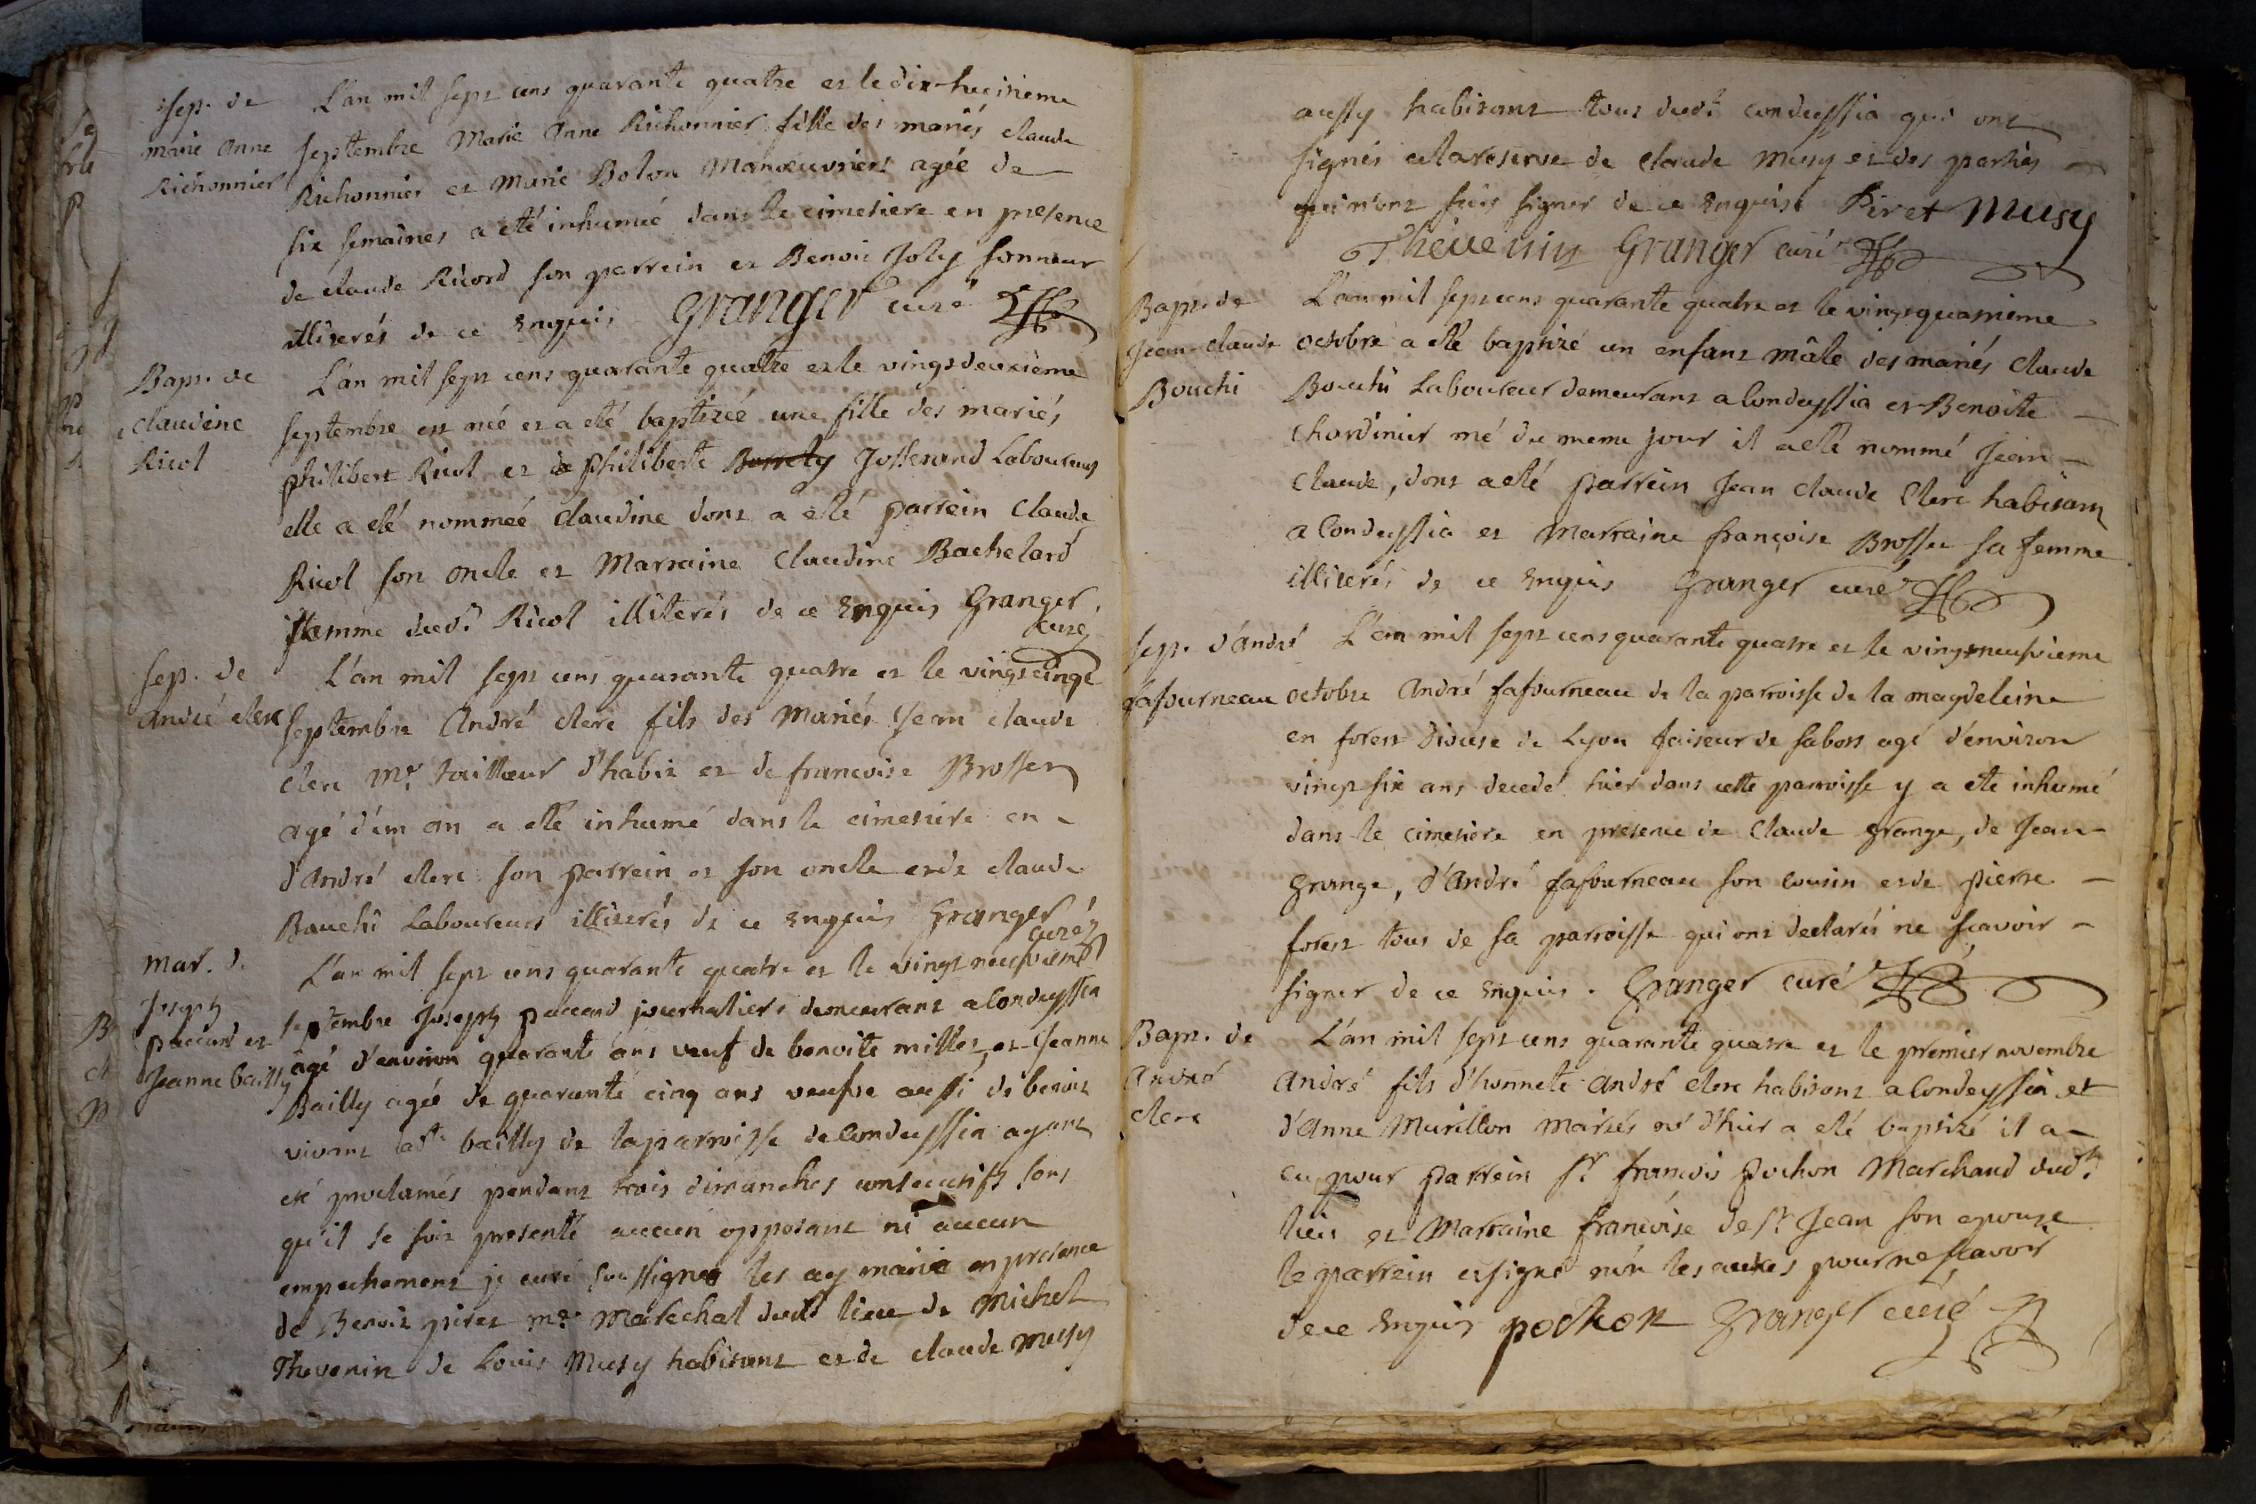 Sep. de
marie Anne
Richonnier
L'an mil sept cens quarante quatre et le dix-huitieme
septembre Marie Anne Richonnier fille des mariés claude
Richonnier et Marie Bolon Manoeuvriers agée de
six semaines a eté inhumée dans le cimetiere en presence
de claude Ricord son parrein et Benoit Joly sonneur
illiterés de ce enquis Granger curé
Bapt. de
claudine
Ricol
L'an mil sept cens quarante quatre et le vingtdeuxième
septembre est née et a eté baptizée une fille des mariés
philibert Ricol et de philiberte Josserand Laboureurs
elle a eté nommée claudine dont a eté parrein claude
Ricol son oncle et Marraine Claudine Bachelard
femme dud. Ricol illiterés de ce enquis Granger
curé
Sep. de
André clerc
L'an mil sept cens quarante quatre et le vingtcinqe
septembre André clerc fils des Mariés Jean claude
clerc Mr. tailleur d'habit et de francoise Brosset
agé d'un an a eté inhumé dans le cimetiere en
d'André clerc son parrein et son oncle et de claude
Bauchi Laboureurs illiterés de ce enquis Granger
curé
Mar. de
Joseph
paccard et
Jeanne bailly
L'an mil sept cens quarante quatre et le vingt neufvieme
septembre Joseph paccard journaliers demeurant a Condeyssia
agé d'environ quarante ans veuf de benoite millet et Jeanne
Bailly agée de quarante cinq ans veufve aussi de benoit
vivant bailly de la parroisse de Condeyssia ayant
eté proclamés pendant trois dimanches consecutifs sans
qu'il se soit presenté aucun opposant ni aucun
empechement je curé soussigné les ay marié en presence
de Benoit piret mr Marechal dud. lieu de Michel
Thevenin de Louis Musy habitant et de claude musy
aussy habitant tous dud. condeyssia qui ont
signés a la reserve de claude musy et des parties
qui n'ont sceu signer de ce enquist Piret Musy
Thevenin Granger curé
Bapt. de
Jean-claude
Bouchi
L'an mil sept cens quarante quatre et le vingtquatrieme
octobre a eté baptizé un enfant mâle des mariés claude
Bouchi Laboureur demeurant a Condeyssia et Benoite
Chardinier né du meme jour il a eté nommé Jean
Claude, dont a eté parrein Jean claude Clerc habitant
a Condeyssia et Marraine françoise Brosset sa femme
illiterés de ce enquis Granger curé
Sep. d'André
fafourneau
L'an mil sept cens quarante quatre et le vingtneufvieme
octobre André fafourneau de la parroisse de la magdeleine
en forest diocese de Lyon faiseur de sabots agé d'environ
vingt six ans decedé hier dans cette parroisse y a eté inhumé
dans le cimetiere en presence de Claude Grange, de Jean
Grange, d'André fafourneau son cousin et de pierre
forest tous de sa parroisse qui ont declarés ne scavoir
signer de ce enquis. Granger curé
Bapt. de
André
clerc
L'an mil sept cens quarante quatre et le premier novembre
André fils d'honnete André clerc habitant a Condeyssia et
d'Anne Murillon mariés né d'hier a eté baptizé il a
eu pour parrein sr. francois pochon Marchand dud.
lieu et Marraine francoise de st Jean son epouze
le parrein a signé non les autres pour ne scavoir
de ce enquis pochon Granger curé